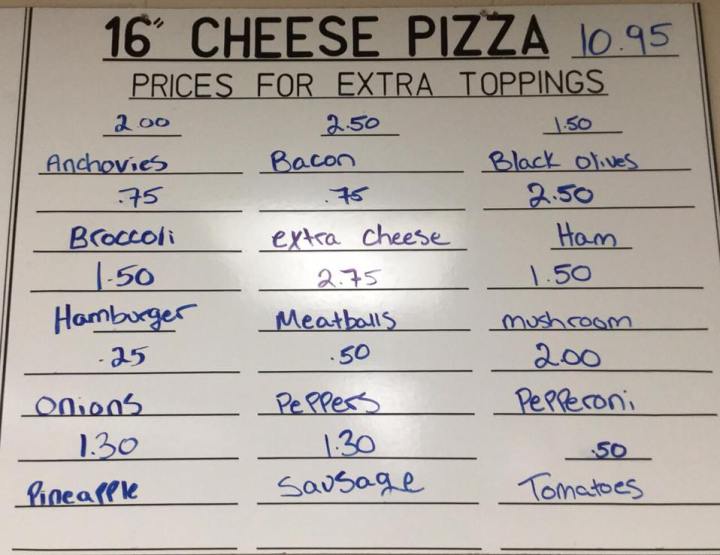 16" CHEESE PIZZA 10.95
PRICES FOR EXTRA TOPPINGS
2.00 2.50 1.50
Anchovies Bacon Black olives
.75 .75 2.50
Broccoli extra cheese Ham
1.50 2.75 1.50
Hamburger Meatballs mushroom
.25 .50 2.00
onions Peppers Pepperoni
1.30 1.30 .50
Pineapple Sausage Tomatoes